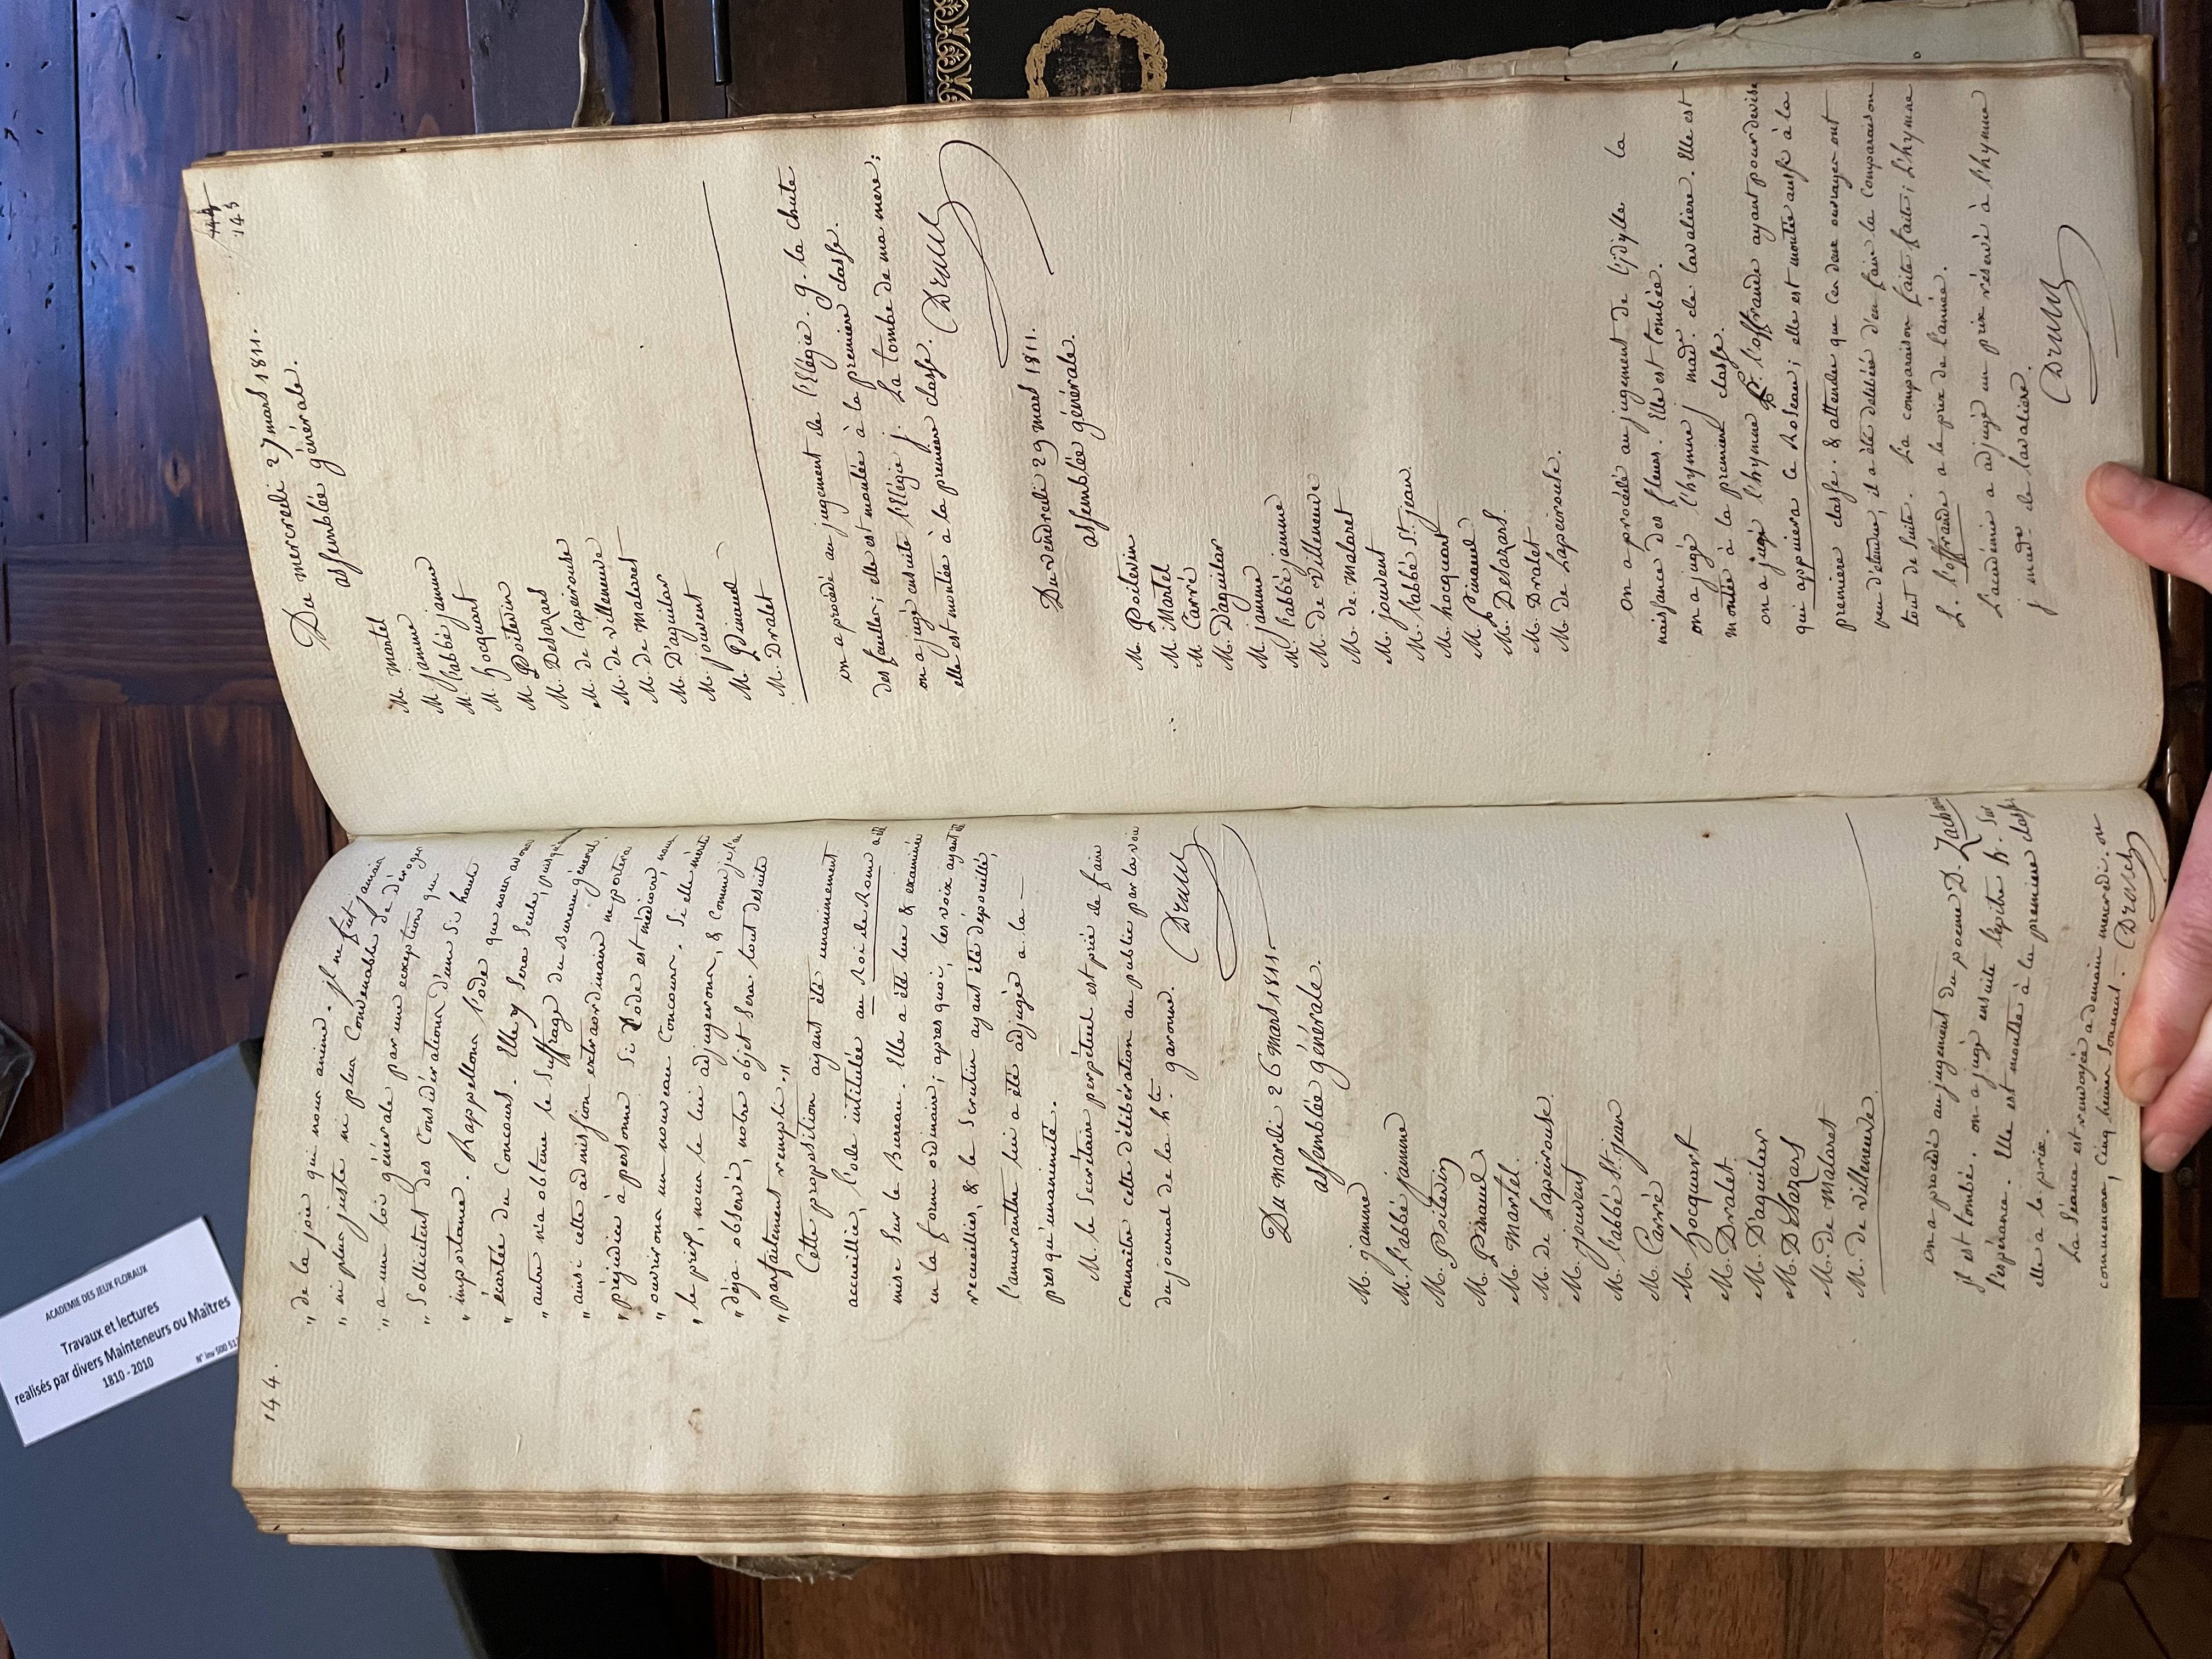 144.
" de la joie qui nous anime. il ne fut jamais
" ni plus juste ni plus convenable de déroger
" a une loi générale par une exception que
" Sollicitent des Considérations d'un Si haute
" importance. Rappellons l'ode que nous avons
" écartée du Concours. Elle y Sera Seule, puisqu'
" autre n'a obtenu le Suffrage du Bureau général.
" ainsi cette admission extraordinaire ne portera
" préjudice à personne. Si l'ode est médiocre, nous
" ouvrirons un nouveau Concours. Si elle mérite
" le prix, nous le lui adjugerons, & comme je l'ai
" déja observé, notre objet Sera tout desuite
" parfaitement rempli."
Cette proposition ayant été unanimement
accueillie, l'ode intitulée au Roi de Rome a été
mise Sur le Bureau. Elle a été lue & examinée
en la forme ordinaire; après quoi, les voix ayant été
recueillies, & le Scrutin ayant été dépouillé,
l'amaranthe lui a été adjugée a la
presqu'unanimité.
M. le Secrétaire perpétuel est prié de faire
connaître cette délibération au public par la voie
du journal de la h.te garonne. Druilh
Du mardi 26 Mars 1811.
assemblée générale.
M. jamme
M. l'abbé jamme
M. Poitevin
M. Pinaud
M. Martel.
M. de Lapeirouse.
M. jouvent
M. l'abbé St. jean
M. Carré
M. hocquart
M. Dralet
M. D'aguilar
M. Desazars
M. de Malaret
M. de villeneuve.
on a procédé au jugement du poeme D.
il est tombé. on a jugé ensuite l'epitre h. Sur
l'espérance. Elle est montée à la premiere classe
elle a le prix.
La Séance est renvoyée a demain mercredi. on
commencera, Cinq heures Sonnant. Druilh
145
Du mercredi 27 mars 1811.
assemblée générale.
M. martel
M. jamme
M. l'abbé jamme
M. hocquart
M. Poitevin
M. Desazars
M. de lapeirouse
M. de villeneuve
M. de malaret
M. D'aguilar
M. jouvent
M. Pinaud
M. Dralet
on a procédé au jugement de l'Elégie. g. la chute
des feuilles; elle est montée à la premiere classe.
on a jugé ensuite l'Elégie j. La tombe de ma mere;
elle est montée à la premiere classe. Druilh
Du vendredi 29 mars 1811.
assemblée générale.
M. Poitevin
M. Martel
M. Carré
M. D'aguilar
M. jamme
M. l'abbé jamme
M. de Villeneuve
M. de malaret
M. jouvent
M. l'abbé St. jean.
M. hocquart
M. Pinaud
M. Desazars.
M. Dralet
M. de Lapeirouse.
on a procédé au jugement de l'idylle la
naissance des fleurs. Elle est tombée.
on a jugé l'hymne j mad. de lavaliere. Elle est
montée à la premiere classe.
on a jugé l'hymne L. l'offrande ayant pour devise
qui appuiera ce Roseau; elle est montée aussi à la
premiere classe. & attendu que Ces deux ouvrages ont
peu d'etendue, il a été delibéré d'en faire la Comparaison
tout de Suite. La comparaison faite; L'hymne
L. l'offrande a le prix de l'année.
L'académie a adjugé un prix réservé à l'hymne
j mad. de lavaliere.
Druilh
ACADEMIE DES JEUX FLORAUX
Travaux et lectures
realisés par divers Mainteneurs ou Maîtres
1810 - 2010